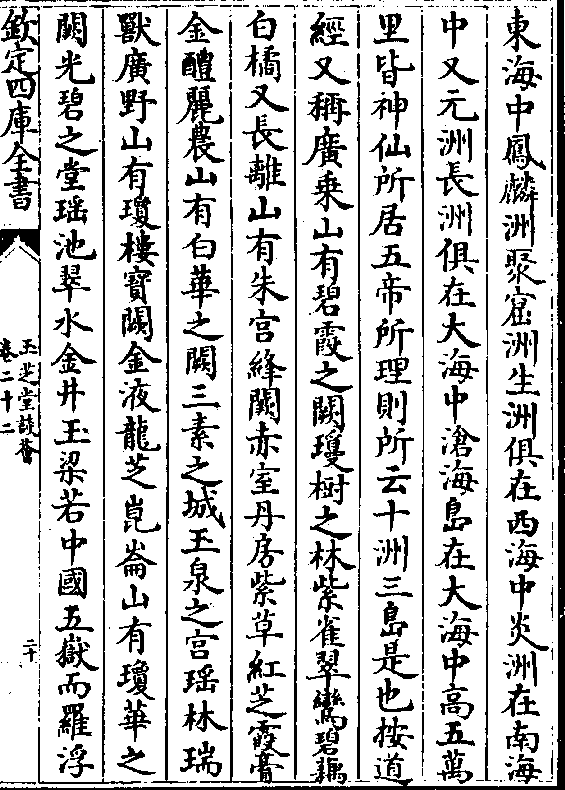 東海中鳳麟洲聚窟洲生洲俱在西海中炎洲在南海
中又元洲長洲俱在大海中滄海島在大海中高五萬
里皆神仙所居五帝所理則所云十洲三島是也按道
經又稱廣乗山有碧霞之闕瓊樹之林紫雀翠鸞碧藕
白橘又長離山有朱宫絳闕赤室丹房紫草紅芝霞膏
金醴麗農山有白華之闕三素之城玉泉之宫瑶林瑞
獸廣野山有瓊樓寳闕金液龍芝崑崙山有瓊華之
闕光碧之堂瑶池翠水金井玉梁若中國五嶽而羅浮
欽定四庫全書
玉芝堂談薈
卷二十二
二十